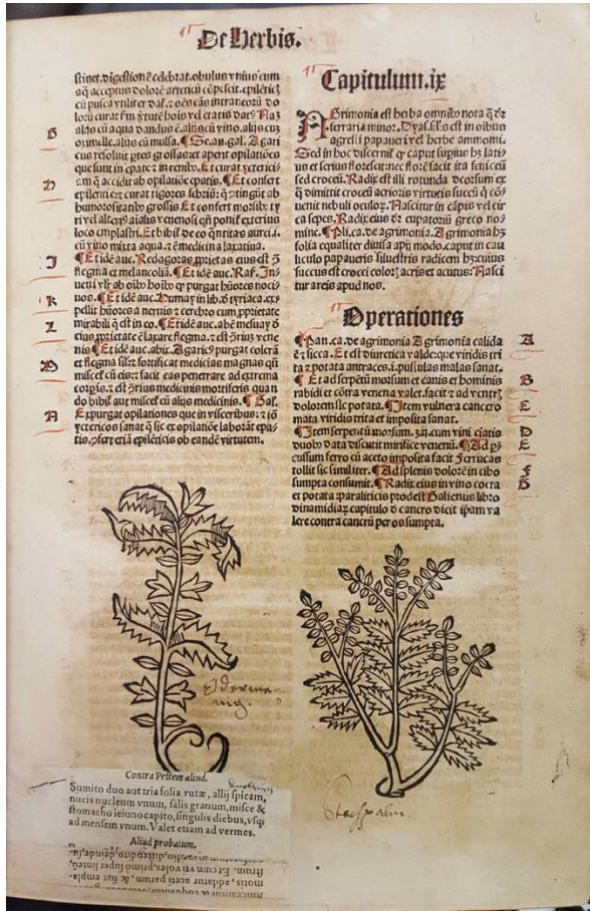 De Herbis.
stinet. digestionē celebrat. obulus vnius cum
aq̄ acceptus dolorē arteticū cōpescit. epilēticꝭ
alijs cū aqua dandus ē. alijs cū vino. alijs cuꝫ
ori melle. alijs cū mulsa. ¶ Se. au. gal. Agari
cus resoluit gros et aperit opilatiōes
que sunt in epate et in renibꝰ. Et curat yctericiā
em q̄ accidit ab opilatiōe epatis. ¶ Et confert
epilenticꝭ et curat rigores febriū
humorositatē grossis. Et confert morsibꝰ ty
ri vel alterꝰ aialis venenosi qn̄ ponit exterius
loco emplastri. Et bibit de eo
cū vino mixta aqua. et ē medicina laxatiua.
¶ Et idē auc. Redagoras ꝓprietas eius est
flegma et melancoliā. ¶ Et idē auc. Raf. In
ueni oībo hoībo qꝫ purgat hūores noci
uos. ¶ Et idē auc. Humay in lib. d tyriaca. ex
pellit hūores a neruis et cerebro cum ꝓprietate
mirabili q̄ est in eo. ¶ Et idē auc. abē mesuay
eius ꝓprietate ē laxare flegma.
nis ¶ Et idē auc. abix. Agaricꝰ purgat colerā
et flegma silꝭ et fortificat medicinas magnas qn̄
miscet cū eis: et facit eas penetrare ad extrema
corpis. et est medicinis mortiferis quan
do bibit aut miscet cū alijs medicinis. ¶ Gal.
Expurgat opilationes que in visceribus:
yctericos sanat q̄ sic ex opilatōe laborāt epa
tis. ꝓfert etiā epilēticis ob eandē virtutem.
B
H
I
K
L
M
N
Capitulum. ix
Agrimonia est herba omnibꝰ nota q̄ dr̄
ferraria minor. Dyas. silꝭ est in oibus
agresti papaueri vel herbe ammomi.
Sed in hoc discernit qꝫ caput supinꝰ hꝫ latiꝰ
et serius florescit ante florē facit ita feniceū
sed croceū. Radix est illi rotunda deorsum ex
q̄ dimittit croceū acrioris virtutis succū q̄ cō
uenit nebuli oculoꝝ. Nascitur in cāpis vel cir
ca sepes. Radix eius dr̄ eupatoriū greco no
mine. ¶ Pli. ca. de agrimonia. Agrimonia hꝫ
folia equaliter diuisa apij modo. caput in cau
liculo papaueris siluestris radicem hꝫ cuius
succus est crocei coloꝝ acris et acutus: Nasci
tur areis apud nos.
Operationes
¶ Pan. ca. de agrimonia Agrimonia calida
ē et sicca. Et est diuretica valde: que viridis tri
ta et potata antraces. i. pusulas malas sanat.
¶ Et ad serpentū morsum et canis et hominis
rabidi et contra venena valet. facit et ad ventrꝭ
dolorem sic potata. ¶ Item vulnera cancero
mata viridis trita et imposita sanat.
¶ Item serpentū morsum. cum vini ciatis
duobꝰ data discutit mirifice venenū. ¶ Ad ꝑ
cussum ferro cū aceto imposita facit
tollit sic similiter. ¶ Ad splenis dolorē in cibo
sumpta consumit. ¶ Radix eius in vino cocta
et potata paraliticis prodest Galienus libro
dinamidiaꝝ capitulo d cancro dicit ipam va
lere contra cancrū per os sumpta.
A
B
C
D
E
F
G
Odermennig.
Stechpalm.
Contra Pestem aliud.
Sumito duo aut tria folia rutæ, allij spicam,
nucis nucleum vnum, salis granum, misce &
stomacho ieiuno capito, singulis diebus, vsq;
ad mensem vnum. Valet etiam ad vermes.
Aliud probatum.